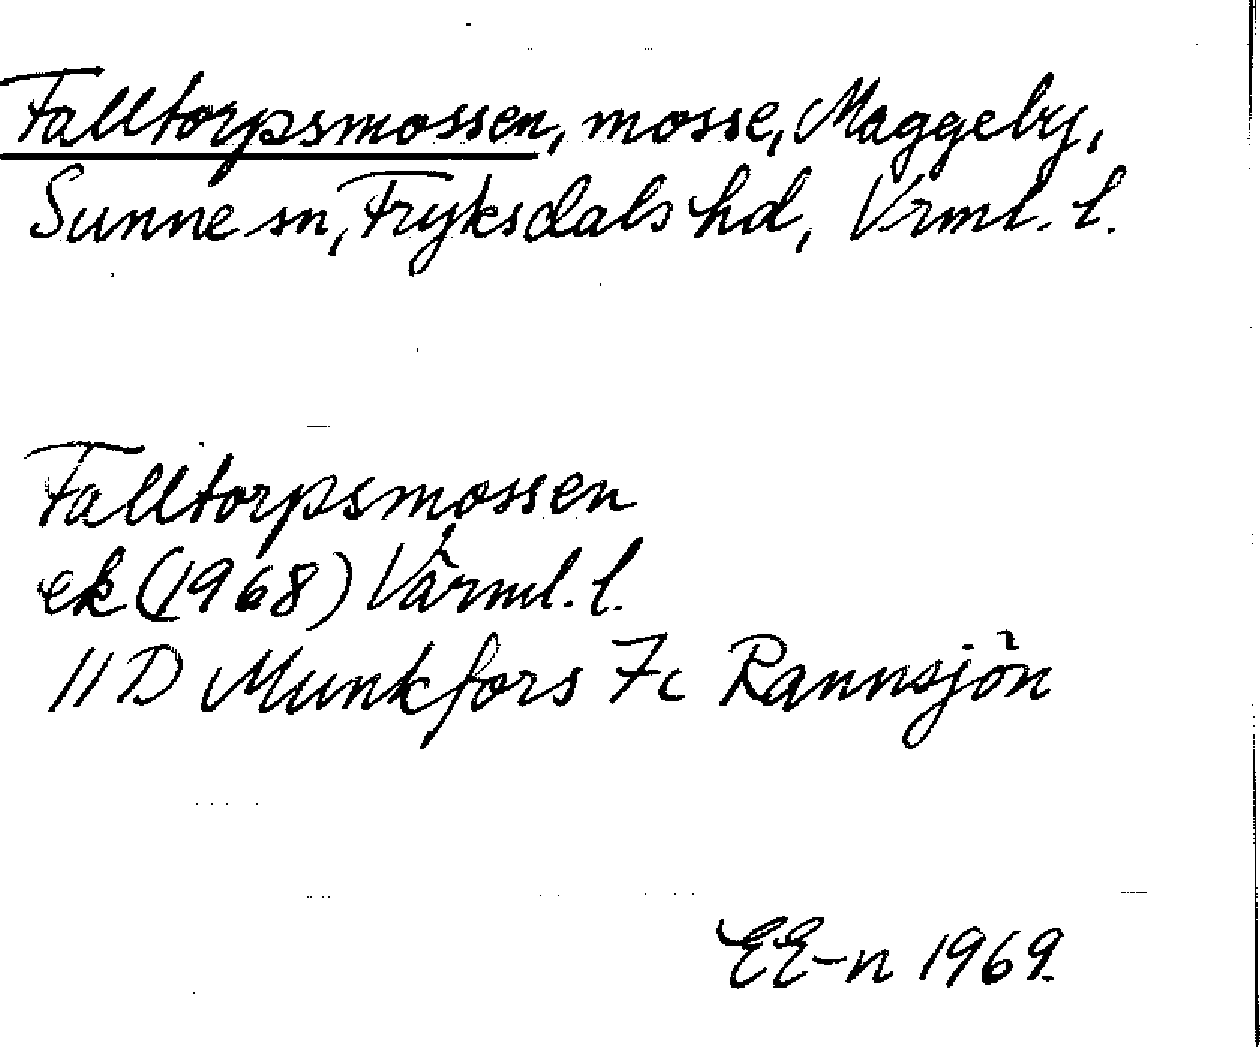 Falltorpsmossen, mosse, Maggeby,
Sunne sn, Fryksdals hd, Vrml. l.
Falltorpsmossen
ek (1968) Värml. l.
11D Munkfors 7c Rannsjön
EE-n 1969.